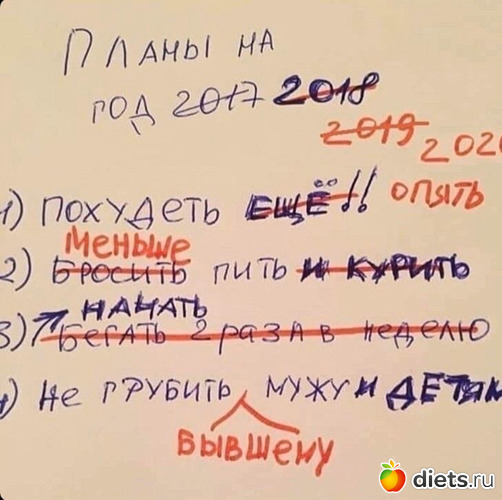 ПЛАНЫ НА
ГОД 2017 2018
2019 2020
1) ПОХУДЕТЬ ЕЩЁ!! ОПЯТЬ
МЕНЬШЕ
2) БРОСИТЬ ПИТЬ И КУРИТЬ
НАЧАТЬ
3) БЕГАТЬ 2 РАЗА В НЕДЕЛЮ
4) НЕ ГРУБИТЬ МУЖУ И ДЕТЯМ
БЫВШЕМУ
diets.ru